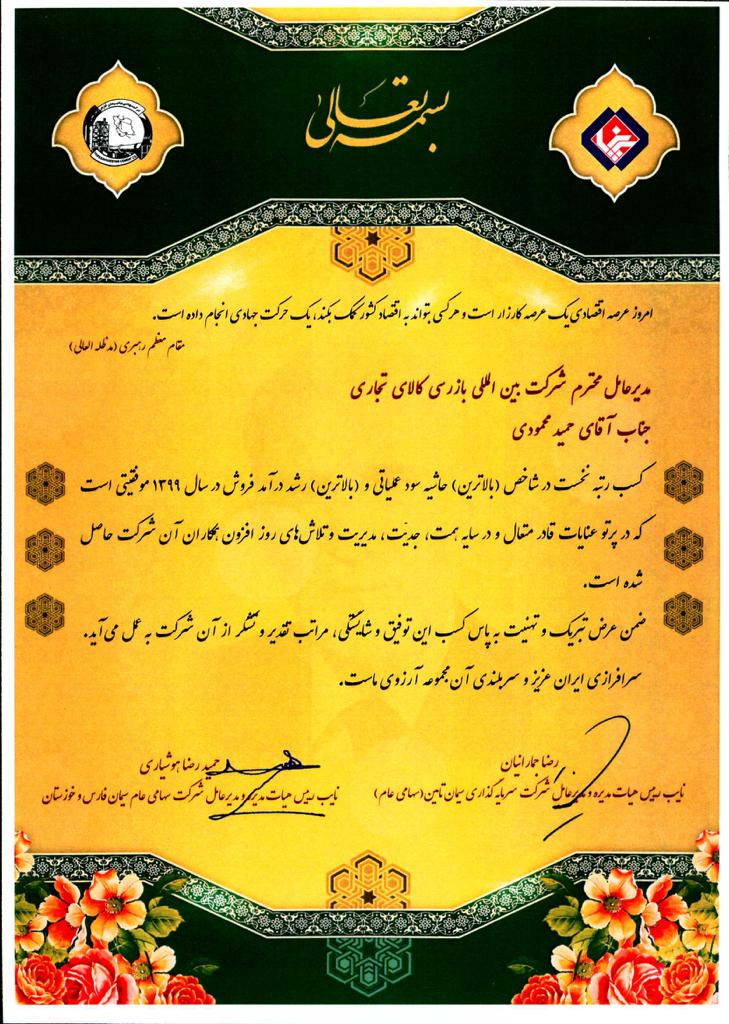 بسمه تعالی
امروز عرصه اقتصادی یک عرصه کارزار است و هر کسی بتواند به اقتصاد کشور کمک بکند، یک حرکت جهادی انجام داده است.
مقام معظم رهبری (مدظله العالی)
مدیرعامل محترم شرکت بین المللی بازرسی کالای تجاری
جناب آقای حمید محمودی
کسب رتبه نخست در شاخص (بالاترین) حاشیه سود عملیاتی و (بالاترین) رشد درآمد فروش در سال ۱۳۹۹ موفقیتی است
که در پرتو عنایات قادر متعال و در سایه همت، جدیت، مدیریت و تلاش های روز افزون همکاران آن شرکت حاصل
شده است.
ضمن عرض تبریک و تهنیت به پاس کسب این توفیق و شایستگی، مراتب تقدیر و تشکر از آن شرکت به عمل می آید.
سرافرازی ایران عزیز و سربلندی آن مجموعه آرزوی ماست.
رضا جمارانیان
نایب رییس هیات مدیره و مدیرعامل شرکت سرمایه گذاری سیمان تامین (سهامی عام)
حمید رضا هوشیاری
نایب رییس هیات مدیره و مدیرعامل شرکت سهامی عام سیمان فارس و خوزستان